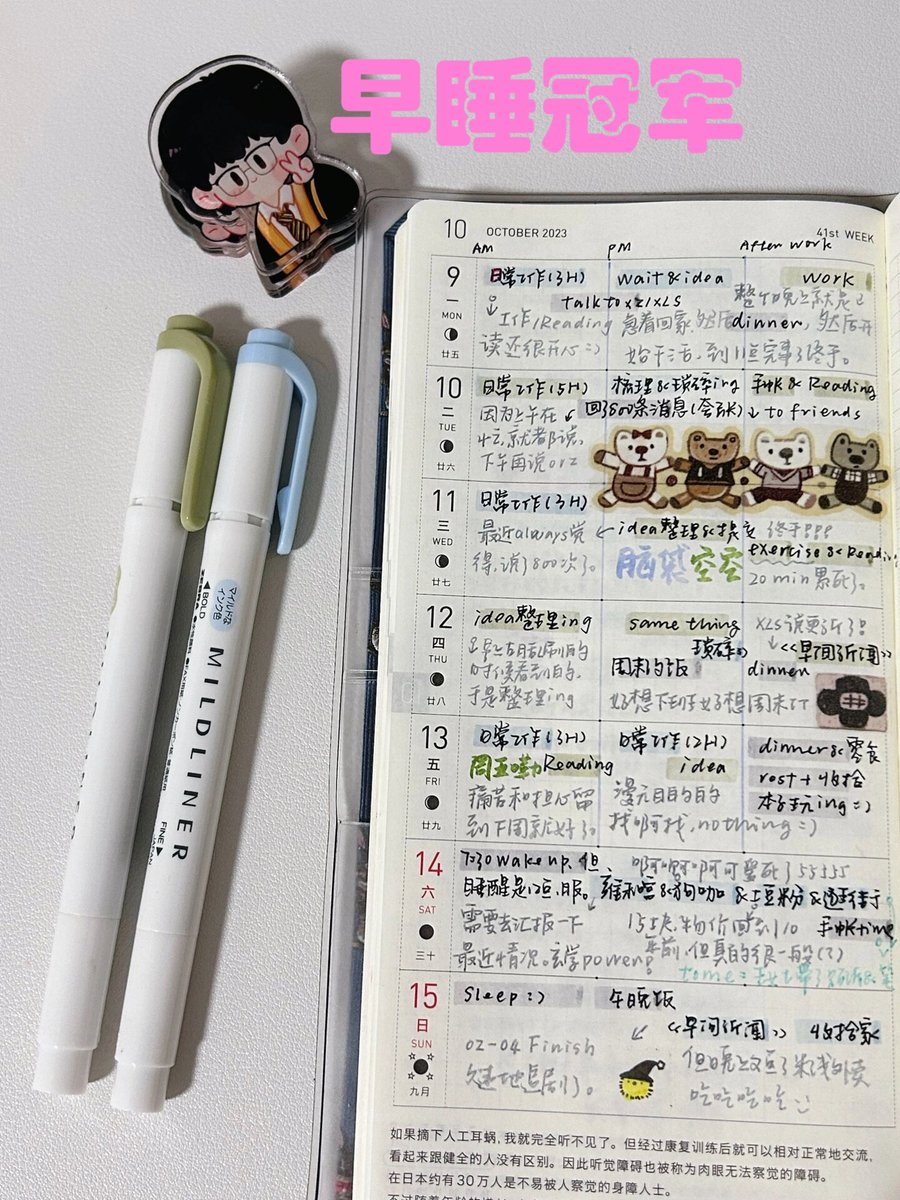 早睡冠军
10 OCTOBER 2023 41st WEEK
AM PM After Work
9 一 MON 廿五
日常工作(3H)
工作/Reading
读还很开心:)
wait & idea
talk to xz/XLS
work
dinner, 然后开
始干活,到11点完事了终于。
10 二 TUE 廿六
日常工作(5H)
因为上午在
忙,就都说,
下午再说orz
梳理&琐碎ing
回了800条消息(夸张)
手帐 & Reading
to friends
11 三 WED 廿七
日常工作(3H)
最近always觉
得,说了800次了。
idea整理&提交
脑袋空空
终于
exercise & Reading
20 min累死了。
12 四 THU 廿八
idea整理ing
时候看到的,
于是整理ing
same thing
琐碎的
周末约饭
好想下班好想周末TT
《早间新闻》
dinner
13 五 FRI 廿九
日常工作(3H)
周五嘞 Reading
痛苦和担心留
到下周就好了。
日常工作(2H)
idea
漫无目的的
找啊找, nothing:)
dinner & 零食
rest + 收拾
本子玩ing:)
14 六 SAT 三十
7:30 wake up, 但
睡醒是12点.服。
需要去汇报一下
最近情况。玄学power!
&土豆粉&
15块,物价回到10
年前,但真的很一般(?)
手帐time
15 日 SUN 九月
Sleep:)
02-04 Finish
午晚饭
《早间新闻》 收拾家
吃吃吃吃
MILDLINER
BOLD
FINE
ZEBRA
マイルドな
インク色
如果摘下人工耳蜗,我就完全听不见了。但经过康复训练后就可以相对正常地交流,
看起来跟健全的人没有区别。因此听觉障碍也被称为肉眼无法察觉的障碍。
在日本约有30万人是不易被人察觉的身障人士。